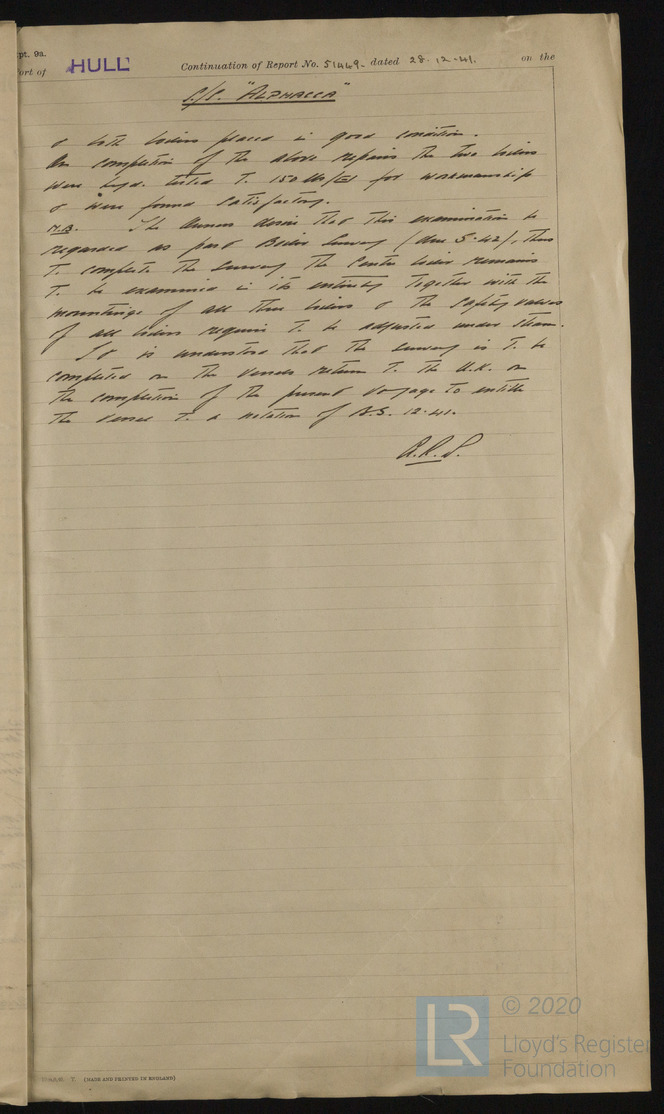 Rpt. 9a.
Port of HULL Continuation of Report No. 51449 - dated 28.12.41. on the
S/S. "ALPHACCA"
& both boilers placed in good condition.
On completion of the above repairs the two boilers
were hyd. tested to 150 lbs/□" for workmanship
& were found satisfactory.
N.B. The Owners desire that this examination be
regarded as part Boiler Survey (due 5.42), thus
to complete the Survey the Centre boiler remains
to be examined in its entirety together with the
mountings of all three boilers & the safety valves
of all boilers require to be adjusted under steam.
It is understood that the Survey is to be
completed on the vessels return to the U.K. on
the completion of the present voyage to entitle
the vessel to a notation of B.S. 12.41.
(MADE AND PRINTED IN ENGLAND)
LR
© 2020
Lloyd's Register
Foundation